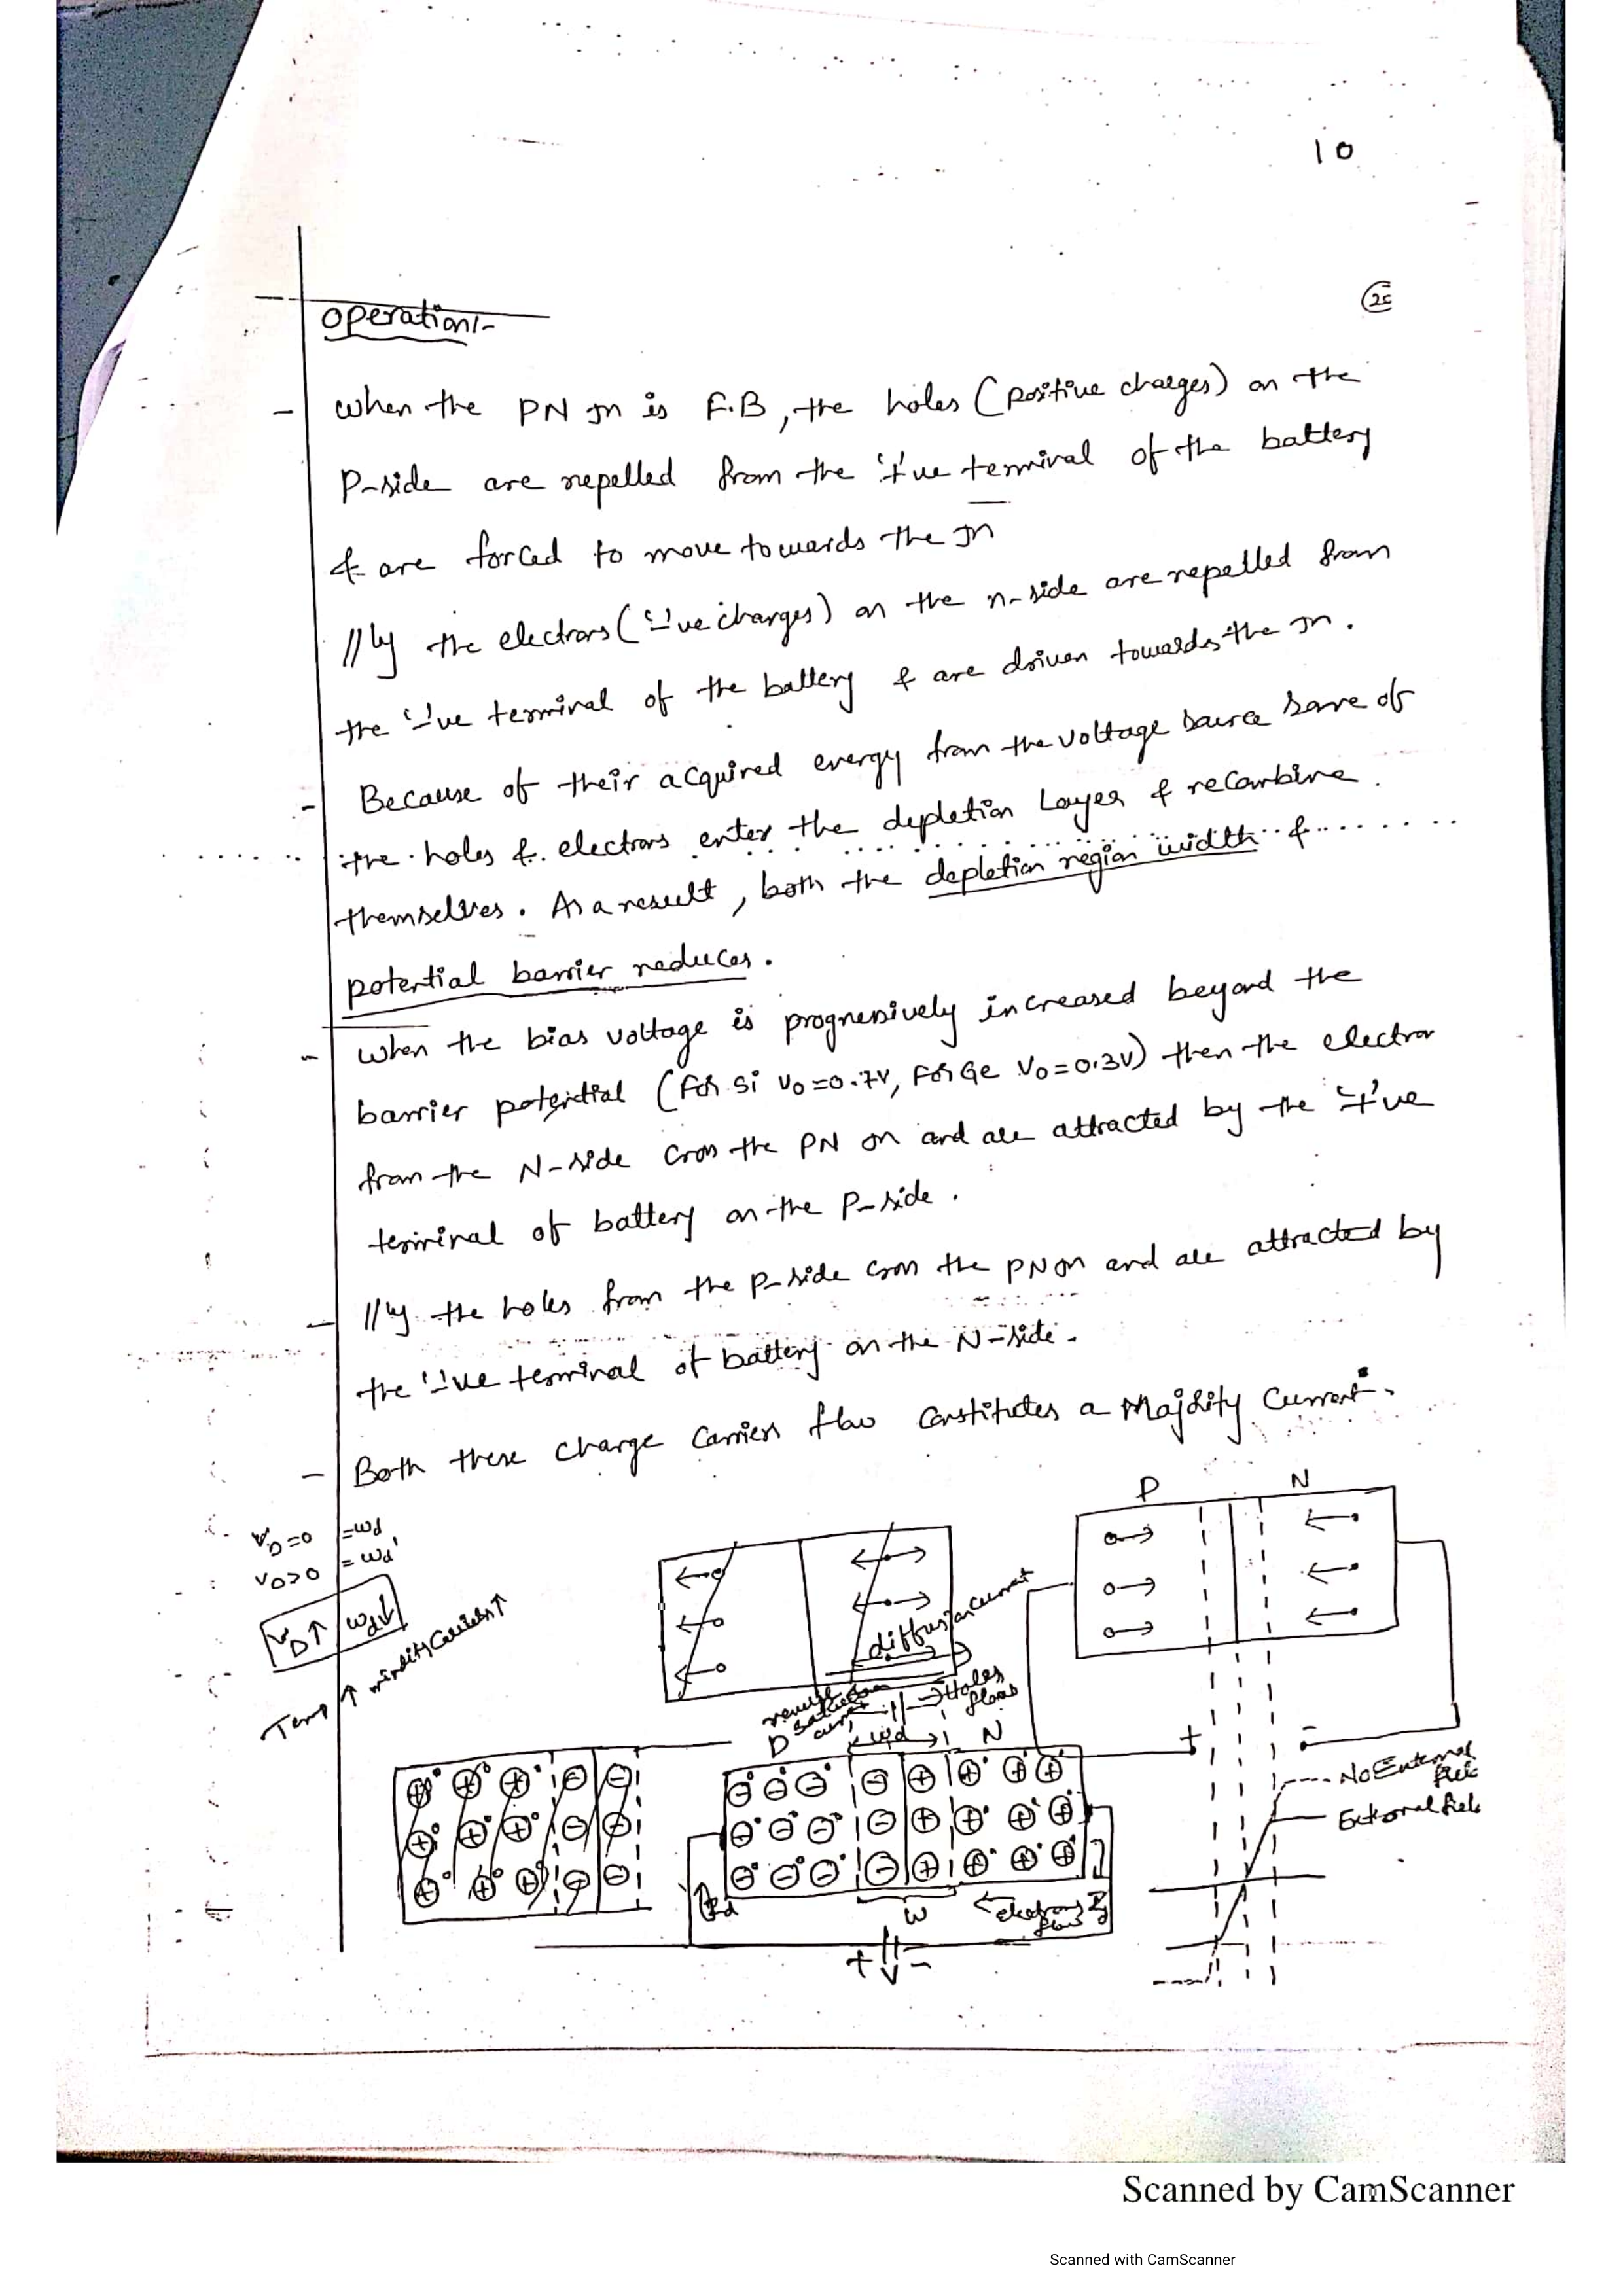 10
operation:-
- when the PN Jn is F.B, the holes (positive charges) on the
P-side are repelled from the '+'ve terminal of the battery
& are forced to move towards the Jn
//ly the electrons ('-'ve charges) on the n-side are repelled from
the '-'ve terminal of the battery & are driven towards the Jn.
- Because of their acquired energy from the voltage source some of
the holes & electrons enter the depletion Layer & recombine
themselves. As a result, both the depletion region width &
potential barrier reduces.
- when the bias voltage is progressively increased beyond the
barrier potential (For Si V0=0.7V, For Ge V0=0.3V) then the electron
from the N-side cross the PN Jn and are attracted by the '+'ve
terminal of battery on the P-side.
- //ly the holes from the P-side cross the PN Jn and are attracted by
the '-'ve terminal of battery on the N-side.
- Both these charge carriers flow constitutes a Majority Current.
P N
VD=0 =wd
VD>0 = wd'
VD↑ wd↓
Temp ↑ minority carriers↑
diffusion current
reverse saturation current
Holes flow
P wd N
+ -
No External field
External field
W
electrons flow
+ V -
Scanned by CamScanner
Scanned with CamScanner